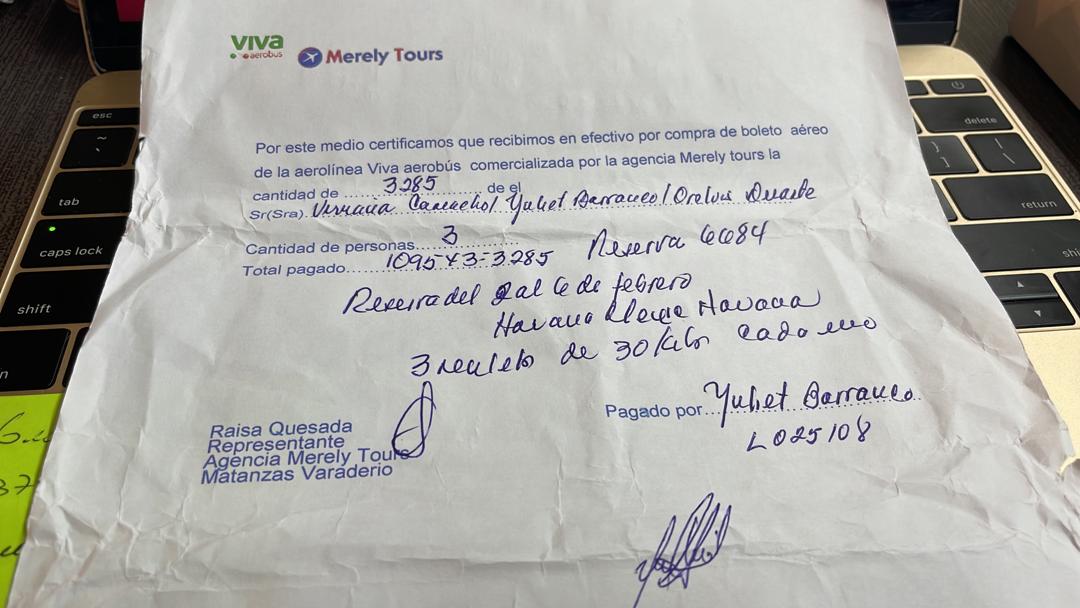 viva
aerobus
Merely Tours
Por este medio certificamos que recibimos en efectivo por compra de boleto aéreo
de la aerolínea Viva aerobús comercializada por la agencia Merely tours la
cantidad de 3285 de el
Sr(Sra). Camacho/ Yuliet Barranco/ Duarte
Cantidad de personas 3
Total pagado 1095x3=3285 Reserva 6684
Reserva del 2 al 6 de febrero
Havana Havana
3 de 30 kilos cada uno
Pagado por Yuliet Barranco
L025108
Raisa Quesada
Representante
Agencia Merely Tours
Matanzas Varaderio
esc
tab
caps lock
shift
delete
return